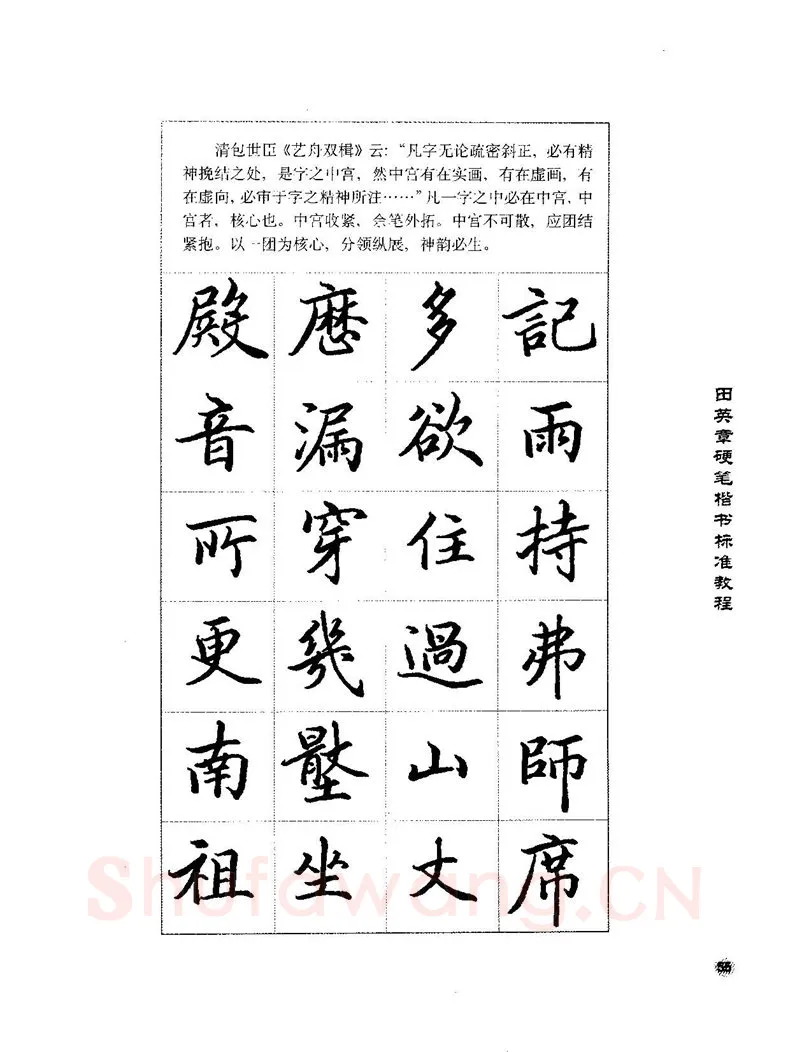 清包世臣《艺舟双楫》云:“凡字无论疏密斜正,必有精
神挽结之处,是字之中宫,然中宫有在实画,有在虚画,有
在虚向,必审于字之精神所注……”凡一字之中必在中宫,中
宫者,核心也。中宫收紧,余笔外拓。中宫不可散,应团结
紧抱。以一团为核心,分领纵展,神韵必生。
殿 多 記
音 漏 欲 雨
所 穿 住 持
更 幾 過 弗
南 山 師
祖 坐 丈 席
田英章硬笔楷书标准教程
Shufawang.CN